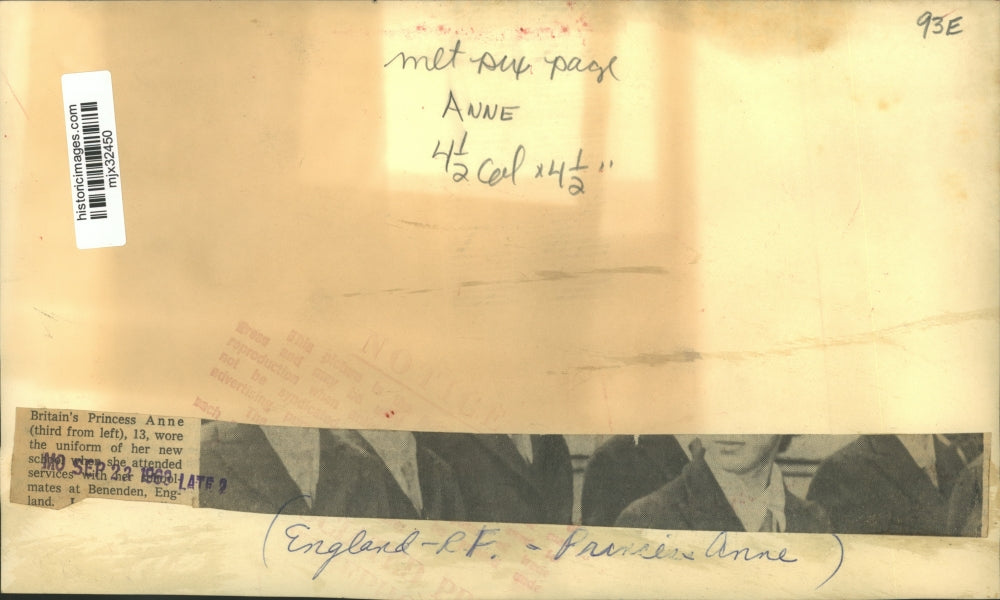 93E
met six page
ANNE
4 1/2 Col x 4 1/2"
historicimages.com
mjx32450
NOTICE
This picture
reproduction when
not be
advertising
each
Britain's Princess Anne
(third from left), 13, wore
the uniform of her new
school when she attended
services with her school-
mates at Benenden, Eng-
land.
MO SEP 23 1963 LATE 2
(England - R.F. - Princess Anne)